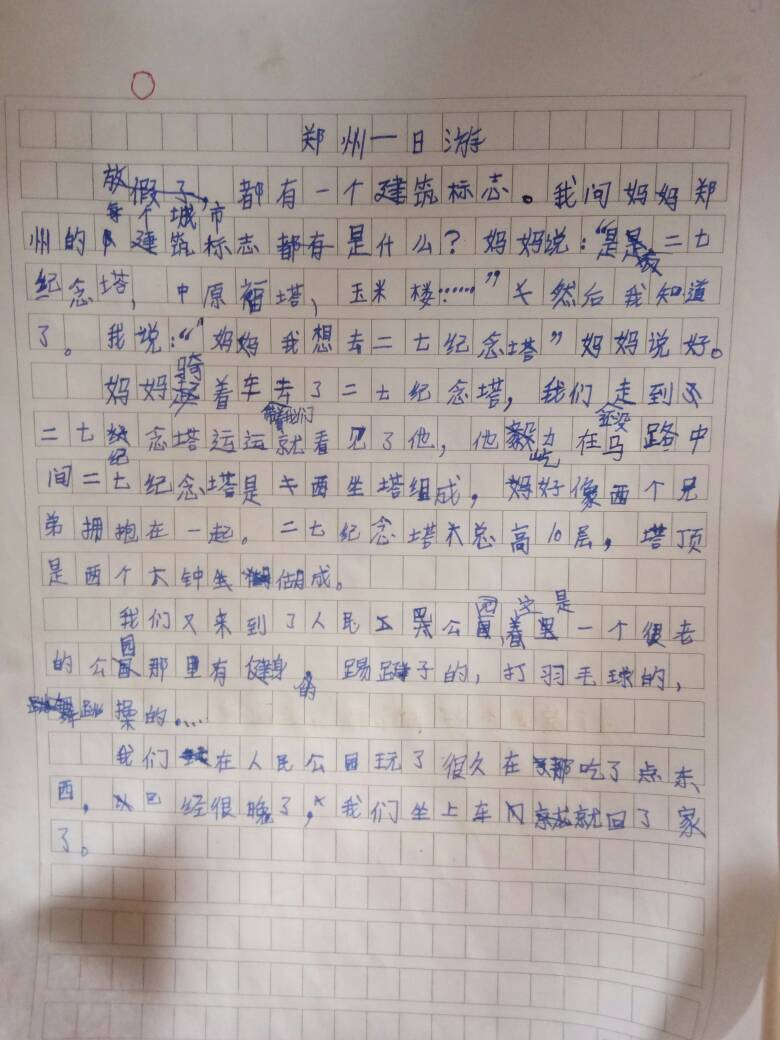 郑州一日游
放假了，每个城市都有一个建筑标志。我问妈妈郑
州的建筑标志是什么？妈妈说：“是二七
纪念塔，中原福塔、玉米楼……”然后我知道
了。我说：“妈妈我想去二七纪念塔”妈妈说好。
妈妈骑着车带着我们去了二七纪念塔，我们走到
二七纪念塔运运就看见了他，他屹立在马路中
间二七纪念塔是两坐塔组成，好像两个兄
弟拥抱在一起。二七纪念塔总高10层，塔顶
是两个大钟做成。
我们又来到了人民公园，这是一个很老
的公园那里有健身的，踢毽子的，打羽毛球的，
跳操的....
我们在人民公园玩了很久在那吃了点东
西，已经很晚了，我们坐上车就回了家
了。